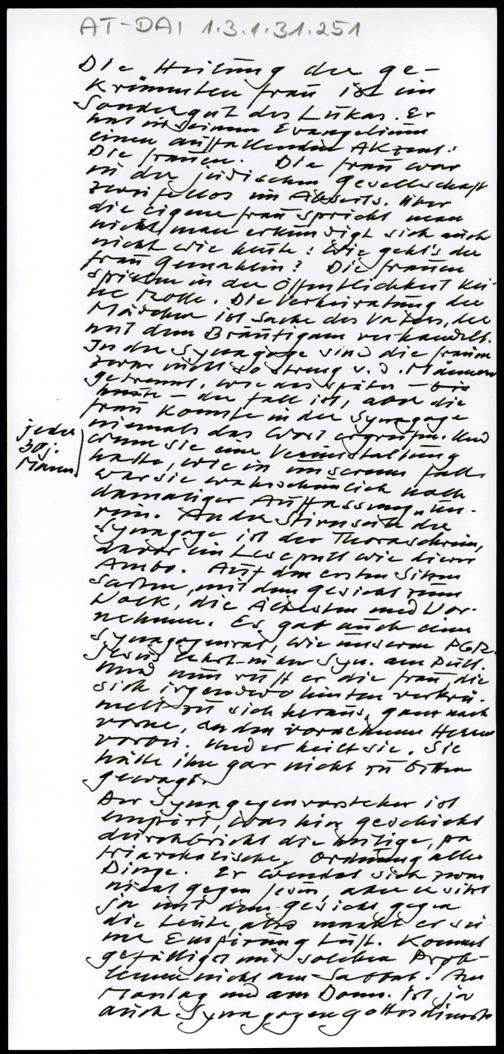 AT-DAI 1.3.1.31.251
Die Heilung der ge-
krümmten Frau ist ein
Sondergut des Lukas. Er
hat in seinem Evangelium
einen auffallenden Akzent:
Die Frauen. Die Frau war
in der jüdischen Gesellschaft
zweifellos im Abseits. Über
die eigene Frau spricht man
nicht, man erkundigt sich auch
nicht wie heute: Wie geht's der
Frau Gemahlin? Die Frauen
spielen in der Öffentlichkeit kei-
ne Rolle. Die Verheiratung der
Mädchen ist Sache des Vaters, der
mit dem Bräutigam verhandelt.
In der Synagoge sind die Frauen
zwar nicht so streng v. d. Männern
getrennt, wie das später – bis
heute – der Fall ist, aber die
Frau konnte in der Synagoge
niemals das Wort ergreifen. Und
wenn sie eine Verunstaltung
jeder
30j.
Mann
hatte, wie in unserem Fall
war sie wahrscheinlich nach
damaliger Auffassung un-
rein. An der Stirnseite der
Synagoge ist der Thoraschrein,
davor ein Lesepult wie dieser
Ambo. Auf den ersten Sitzen
saßen, mit dem Gesicht zum
Volk, die Ältesten und Vor-
nehmen. Es gab auch einen
Synagogenrat, wie unseren PGR.
Jesus lehrt in der Syn. am Pult.
Und nun ruft er die Frau, die
sich irgendwo hinten verkrü-
melt zu sich heraus, ganz nach
vorne, an den vornehmen Herren
vorbei. Und er heilt sie. Sie
hätte ihn gar nicht zu bitten
gewagt.
Der Synagogenvorsteher ist
empört, was hier geschieht
durchbricht die heilige, pa
triarchalische, Ordnung aller
Dinge. Er wendet sich zwar
nicht gegen Jesus, aber er sitzt
ja mit dem Gesicht gegen
die Leute, also macht er sei
ne Empörung Luft. Kommt
gefälligst mit solchen Prob-
lemen nicht am Sabbat. Am
Montag und am Donn. ist ja
auch Synagogengottesdienst